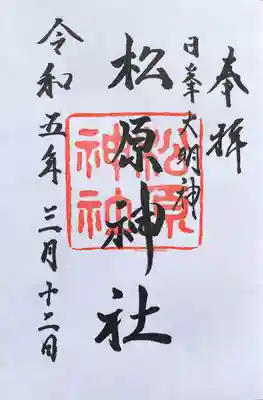 奉拝
日峯大明神
松原神社
松原神社
令和五年三月十二日